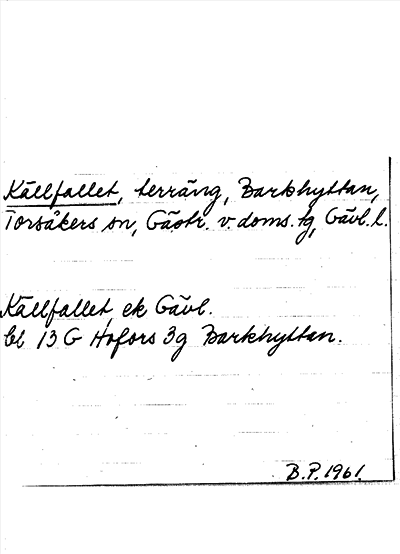 Källfallet, terräng, Barkhyttan,
Torsåkers sn, Gästr. v. doms. tg, Gävl. l.
Källfallet, ek Gävl.
bl 13 G Hofors 3g Barkhyttan.
B.P. 1961.